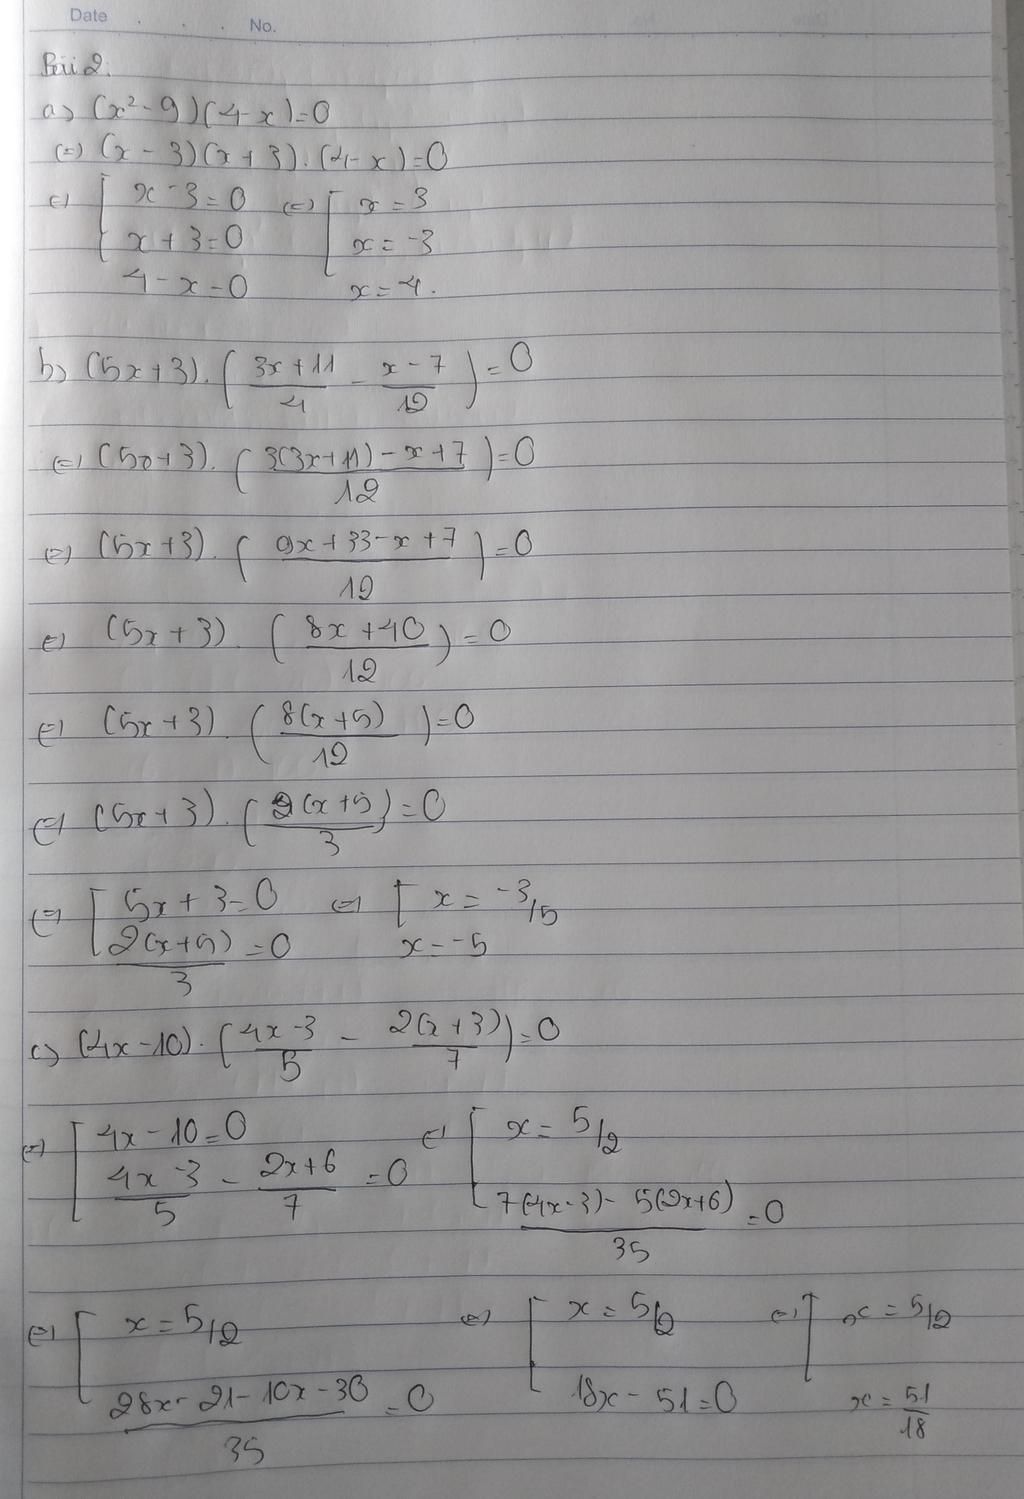 Date . . . No.
Bài 2:
a) (x² - 9)(4 - x) = 0
(=) (x - 3)(x + 3).(4 - x) = 0
(=) [ x - 3 = 0 (=) [ x = 3
x + 3 = 0 x = -3
4 - x = 0 x = 4.
b) (5x + 3).( (3x + 11)/4 - (x - 7)/12 ) = 0
(=) (5x + 3).( (3(3x + 11) - x + 7)/12 ) = 0
(=) (5x + 3).( (9x + 33 - x + 7)/12 ) = 0
(=) (5x + 3).( (8x + 40)/12 ) = 0
(=) (5x + 3).( 8(x + 5)/12 ) = 0
(=) (5x + 3).( 2(x + 5)/3 ) = 0
(=) [ 5x + 3 = 0 (=) [ x = -3/5
2(x + 5)/3 = 0 x = -5
c) (4x - 10).( (4x - 3)/5 - 2(x + 3)/7 ) = 0
(=) [ 4x - 10 = 0 (=) [ x = 5/2
(4x - 3)/5 - (2x + 6)/7 = 0 (7(4x - 3) - 5(2x + 6))/35 = 0
(=) [ x = 5/2 (=) [ x = 5/2 (=) [ x = 5/2
(28x - 21 - 10x - 30)/35 = 0 18x - 51 = 0 x = 51/18